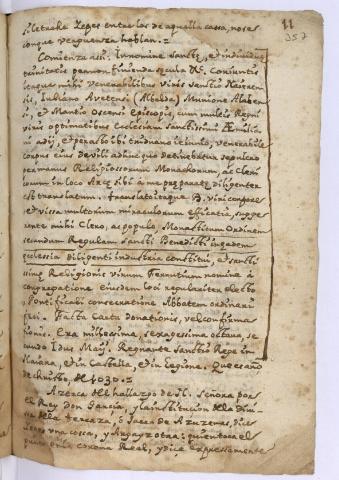 11
257
Pletacha Reges entre los de aquella cassa, no se
con que verguenza hablan.=
Comienza assi. In nomine sanctę, et individuę
trinitatis per non finienda sęcula &c. Coniunctis
itaque mihi venerabilibus viris Sanctio Naxeren-
sis, Iuliano Avetensi (Albelda) Munione Alaben-
si, et Mantio Oscensi Episcopis, cum multis Regni
viris optimatibus Ecclesiam Sanctissimi Æmilia-
ni adij, et peracto ibi triduano ieiunio, venerabile
corpus eius de vili adhuc quo detinebatur sepulcro
per manus Religiossorum Monachorum, ac Cleri-
corum in loco Arcę sibi à me pręparatę diligenter
est translatum. translato itaque B. viri corpore
et vissa multorum miraculorum efficatia, sugge-
rente mihi Clero, ac populo, Monasticum Ordinem
secundum Regulam Sancti Benedicti in eadem
ecclesia diligenti industria constitui, et sancti-
simę Religionis virum Ferrutium nomine à
congregatione eiusdem loci regulariter electo
Pontificali consecratione Abbatem ordinari
feci. Facta Carta donationis, vel confirma-
tionis. Era millesima, sexagesima octava, se-
cundo Idus Maij. Regnante Sanctio Rege in
Naiara, et in Castella, et in Legione. Que es año
de christo, de 1030.=
Acerca del hallazgo de N. Senora por
el Rey don Garcia, y la institucion de la Divi-
sa de la terraza, ò Jarra de Azuzenas, dice
una cosa, y Argayz otra; quien toca el
punto en la corona Real, y dice expressamente